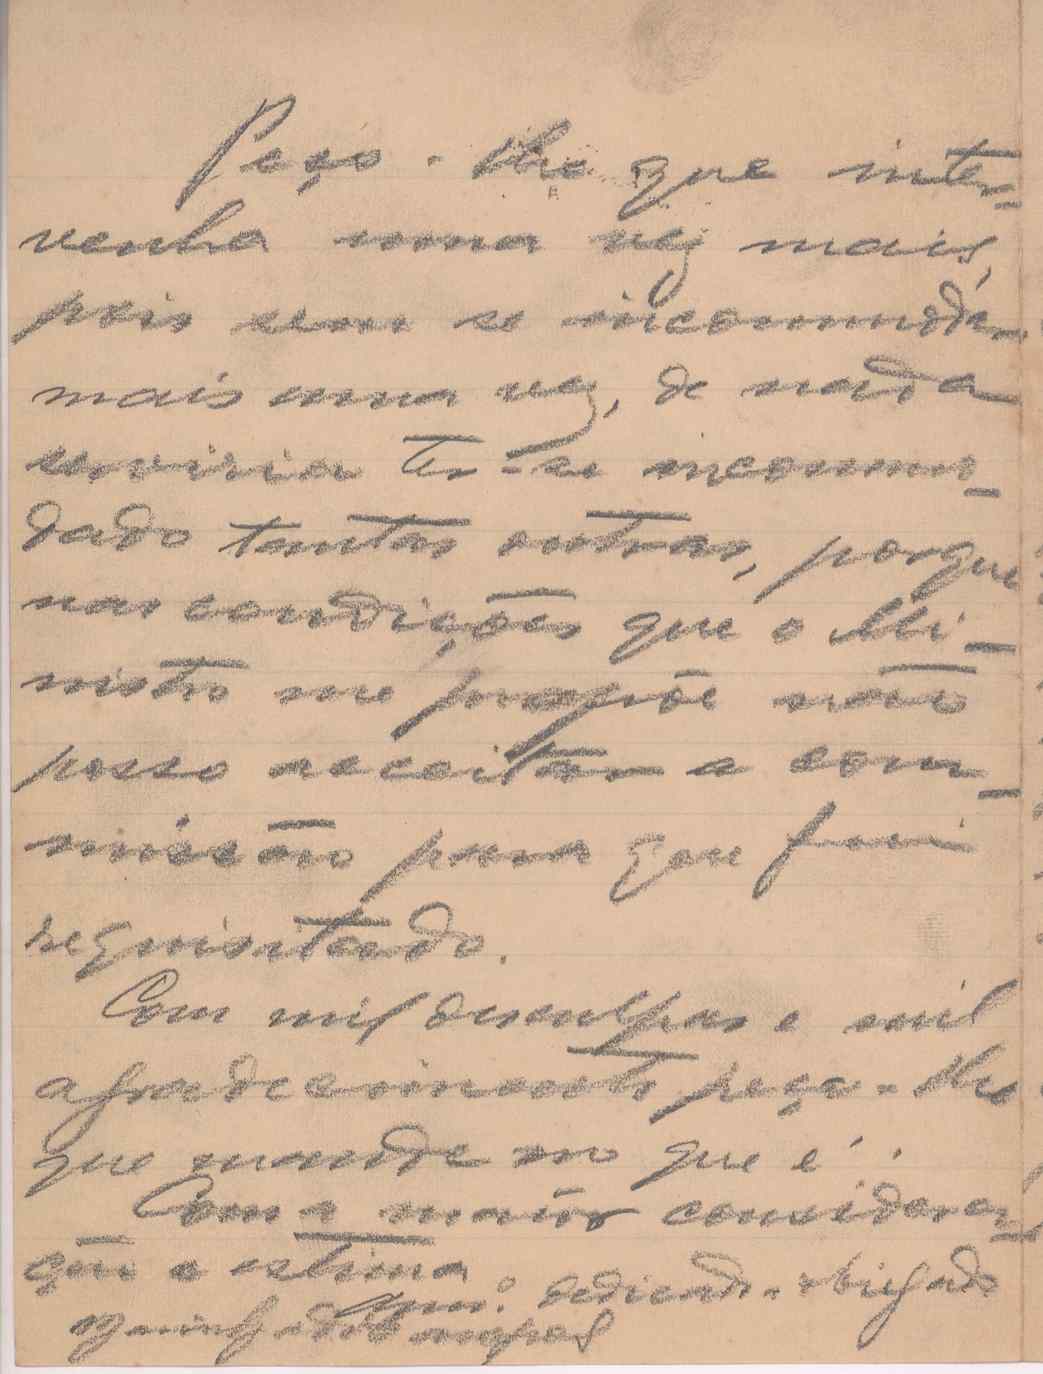 Peço-lhe que inter-
venha uma vez mais,
pois sem se incommodar
mais uma vez, de nada
serviria ter-se incommo-
dado tantas outras, porque
nas condições que o Mi-
nistro me propõe não
posso acceitar a com-
missão para que fui
requisitado.
Com mil desculpas e mil
agradecimentos peço-lhe
que mande no que é.
Com a maior considera-
ção e estima
Amo. dedicado. obrigado